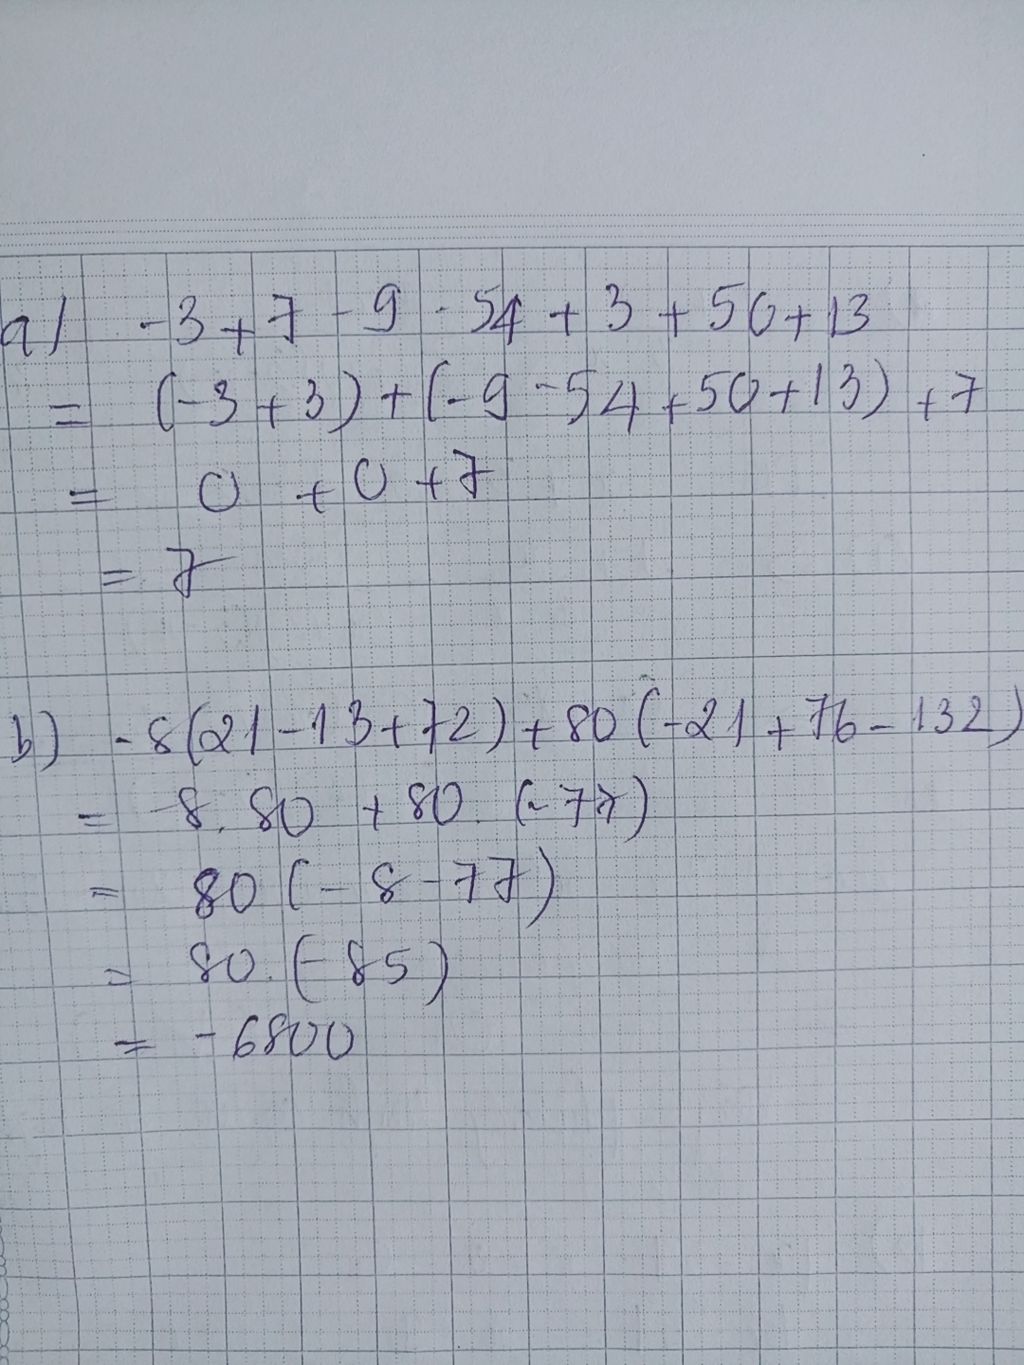 a/ -3+7-9-54+3+50+13
= (-3+3)+(-9-54+50+13)+7
= 0+0+7
= 7
b) -8(21-13+72)+80(-21+76-132)
= -8.80+80.(-77)
= 80(-8-77)
= 80.(-85)
= -6800